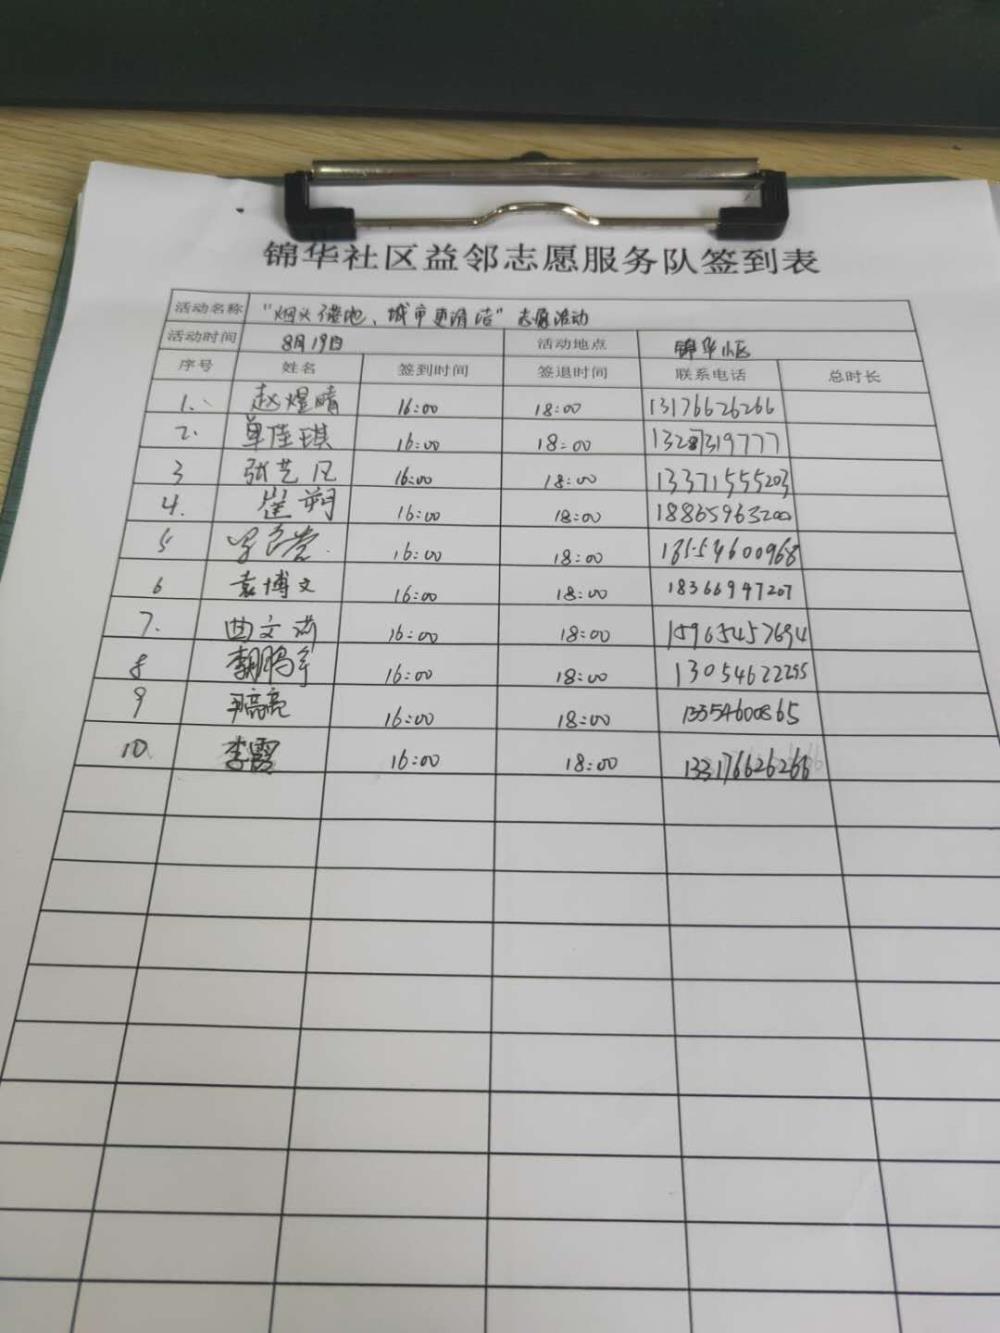 锦华社区益邻志愿服务队签到表
活动名称 "烟头不落地、城市更清洁"志愿活动
活动时间 8月19日 活动地点 锦华小区
序号 姓名 签到时间 签退时间 联系电话 总时长
1. 赵煜晴 16:00 18:00 13176626266
2. 单佳琪 16:00 18:00 13287319777
3 张艺凡 16:00 18:00 13371555203
4. 崔朔 16:00 18:00 18865963200
5 16:00 18:00 13554600968
6 袁博文 16:00 18:00 18366947207
7. 曲文 16:00 18:00 15965457694
8 鹏 16:00 18:00 13054622255
9 高亮 16:00 18:00 13354600865
10. 李霞 16:00 18:00 133176626266